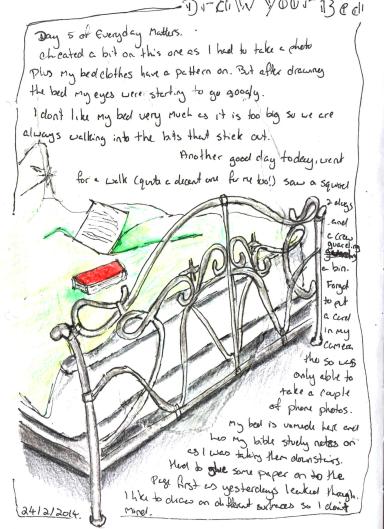 Draw your Bed
Day 5 of Everyday Matters.
cheated a bit on this one as I had to take a photo
plus my bedclothes have a pattern on. But after drawing
the bed my eyes were starting to go googly.
I don't like my bed very much as it is too big so we are
always walking into the bits that stick out.
Another good day today, went
for a walk (quite a decent one for me too!) saw a squirrel
2 dogs
and
a crow
guarding
a bin.
Forgot
to put
a card
in my
camera
tho so was
only able to
take a couple
of phone photos.
My bed is unmade here and
has my bible study notes on
as I was taking them downstairs.
Had to glue some paper on to the
page first as yesterdays leaked though.
I like to draw on different surfaces so I don't
mind.
24/2/2014.